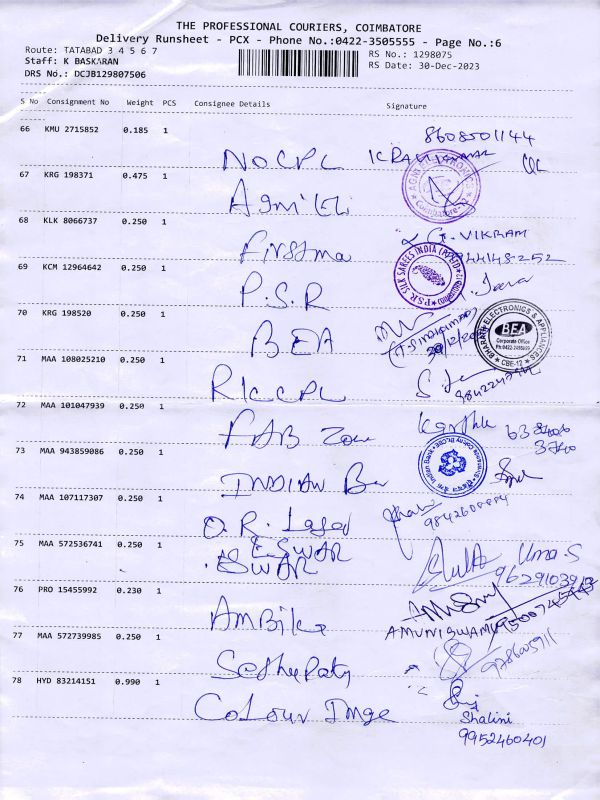 THE PROFESSIONAL COURIERS, COIMBATORE
Delivery Runsheet - PCX - Phone No.:0422-3505555 - Page No.:6
Route: TATABAD 3 4 5 6 7
RS No.: 1298075
Staff: K BASKARAN
RS Date: 30-Dec-2023
DRS No.: DCJB129807506
S No Consignment No Weight PCS Consignee Details Signature
66 KMU 2715852 0.185 1
8608501144
NOCPL
67 KRG 198371 0.475 1
68 KLK 8066737 0.250 1
G. VIKRAM
Firstma
P.S.R SILK SAREES INDIA
69 KCM 12964642 0.250 1
P.S.R
70 KRG 198520 0.250 1
BEA
BHARATH ELECTRONICS & APPLIANCES
BEA
Corporate Office
CBE-12
71 MAA 108025210 0.250 1
RICCPL
72 MAA 101047939 0.250 1
FAB Zone
73 MAA 943859086 0.250 1
INDIAN
74 MAA 107117307 0.250 1
O.R.
75 MAA 572536741 0.250 1
ESWAR
ESWAR
Uma S
9629103913
76 PRO 15455992 0.230 1
Ambika
AMUNISWAMY
77 MAA 572739985 0.250 1
78 HYD 83214151 0.990 1
Colour Imge
Shalini
9952460401